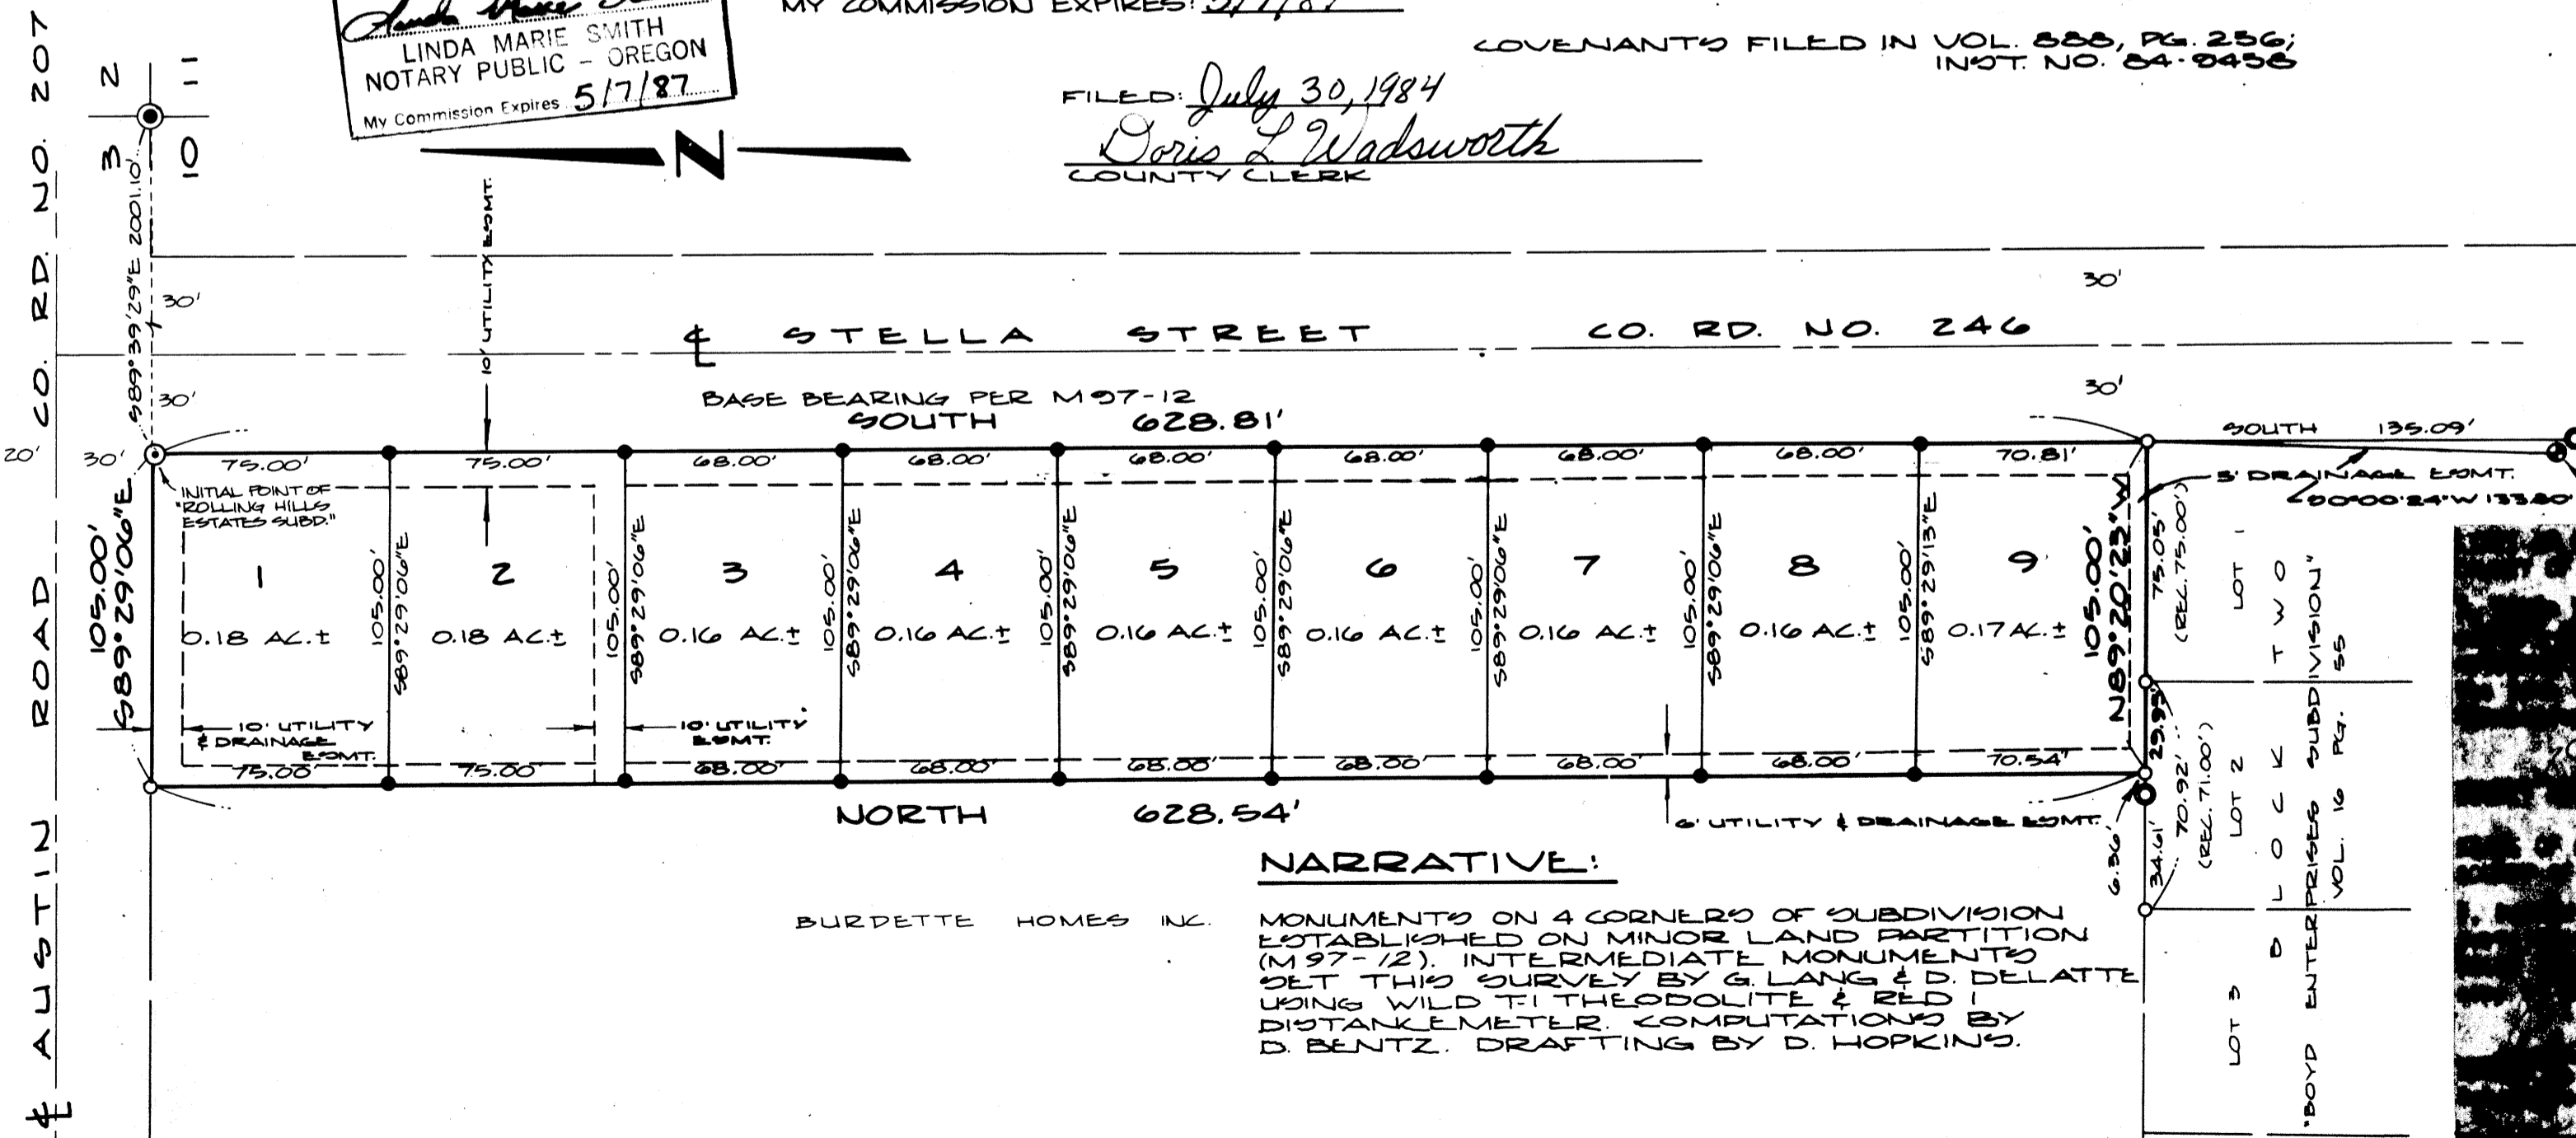 MY COMMISSION EXPIRES: 5/7/87
LINDA MARIE SMITH
NOTARY PUBLIC - OREGON
My Commission Expires 5/7/87
COVENANTS FILED IN VOL. 888, PG. 256;
INST. NO. 84-9458
FILED: July 30, 1984
Doris L Wadsworth
COUNTY CLERK
N
2 11
3 10
S89°39'29"E 2001.10'
10' UTILITY ESMT.
30'
30'
30'
30'
℄ STELLA STREET CO. RD. NO. 246
BASE BEARING PER M97-12
SOUTH 628.81'
SOUTH 135.09'
20' 30'
75.00' 75.00' 68.00' 68.00' 68.00' 68.00' 68.00' 68.00' 70.81'
INITIAL POINT OF
"ROLLING HILLS
ESTATES SUBD."
5' DRAINAGE ESMT.
S0°00'24"W 133.80'
105.00'
S89°29'06"E
1
0.18 AC.±
105.00'
S89°29'06"E
2
0.18 AC.±
105.00'
S89°29'06"E
3
0.16 AC.±
105.00'
S89°29'06"E
4
0.16 AC.±
105.00'
S89°29'06"E
5
0.16 AC.±
105.00'
S89°29'06"E
6
0.16 AC.±
105.00'
S89°29'06"E
7
0.16 AC.±
105.00'
S89°29'06"E
8
0.16 AC.±
105.00'
S89°29'13"E
9
0.17 AC.±
105.00'
N89°20'23"W
75.05'
(REC. 75.00')
LOT 1
10' UTILITY
& DRAINAGE
ESMT.
10' UTILITY
ESMT.
75.00' 75.00' 68.00' 68.00' 68.00' 68.00' 68.00' 68.00' 70.54'
NORTH 628.54'
6' UTILITY & DRAINAGE ESMT.
29.95'
6.36'
34.61'
70.92'
(REC. 71.00')
LOT 2
LOT 3
BLOCK TWO
"BOYD ENTERPRISES SUBDIVISION"
VOL. 16 PG. 55
℄ AUSTIN ROAD CO. RD. NO. 207
BURDETTE HOMES INC.
NARRATIVE:
MONUMENTS ON 4 CORNERS OF SUBDIVISION
ESTABLISHED ON MINOR LAND PARTITION
(M97-12). INTERMEDIATE MONUMENTS
SET THIS SURVEY BY G. LANG & D. DELATTE
USING WILD T-1 THEODOLITE & RED 1
DISTANCEMETER. COMPUTATIONS BY
D. BENTZ. DRAFTING BY D. HOPKINS.